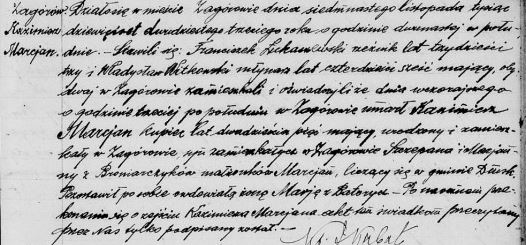 Zagórów Działo się w mieście Zagórowie dnia siedmnastego listopada tysiąc
Kazimierz dziewięćset dwudziestego trzeciego roku o godzinie dwunastej w połu-
Marcjan dnie. – Stawili się: Franciszek rzeźnik lat trzydzieści
trzy i Władysław Witkowski młynarz lat czterdzieści sześć mający, oby-
dwaj w Zagórowie zamieszkali i oświadczyli że dnia wczorajszego
o godzinie trzeciej po południu w Zagórowie umarł Kazimierz
Marcjan kupiec lat dwadzieścia pięć mający, urodzony i zamiesz-
kały w Zagórowie, syn zamieszkałych w Zagórowie Szczepana i
ny z małżonków Marcjan, liczący się w gminie
Pozostawił po sobie owdowiałą żonę Marję z – Po naocznem prze-
konaniu się o zejściu Kazimierza Marcjana akt ten świadkom przeczytany
przez Nas tylko podpisany został. –